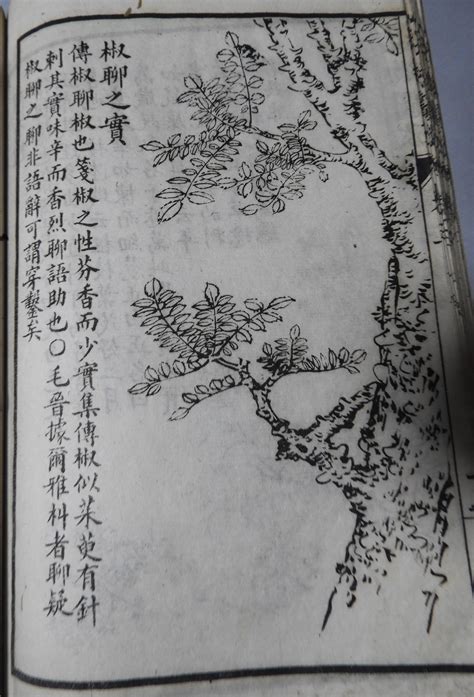 椒聊之實
傳椒聊椒也箋椒之性芬香而少實集傳椒似茱萸有針
刺其實味辛而香烈聊語助也〇毛晉據爾雅朻者聊疑
椒聊之聊非語辭可謂穿鑿矣